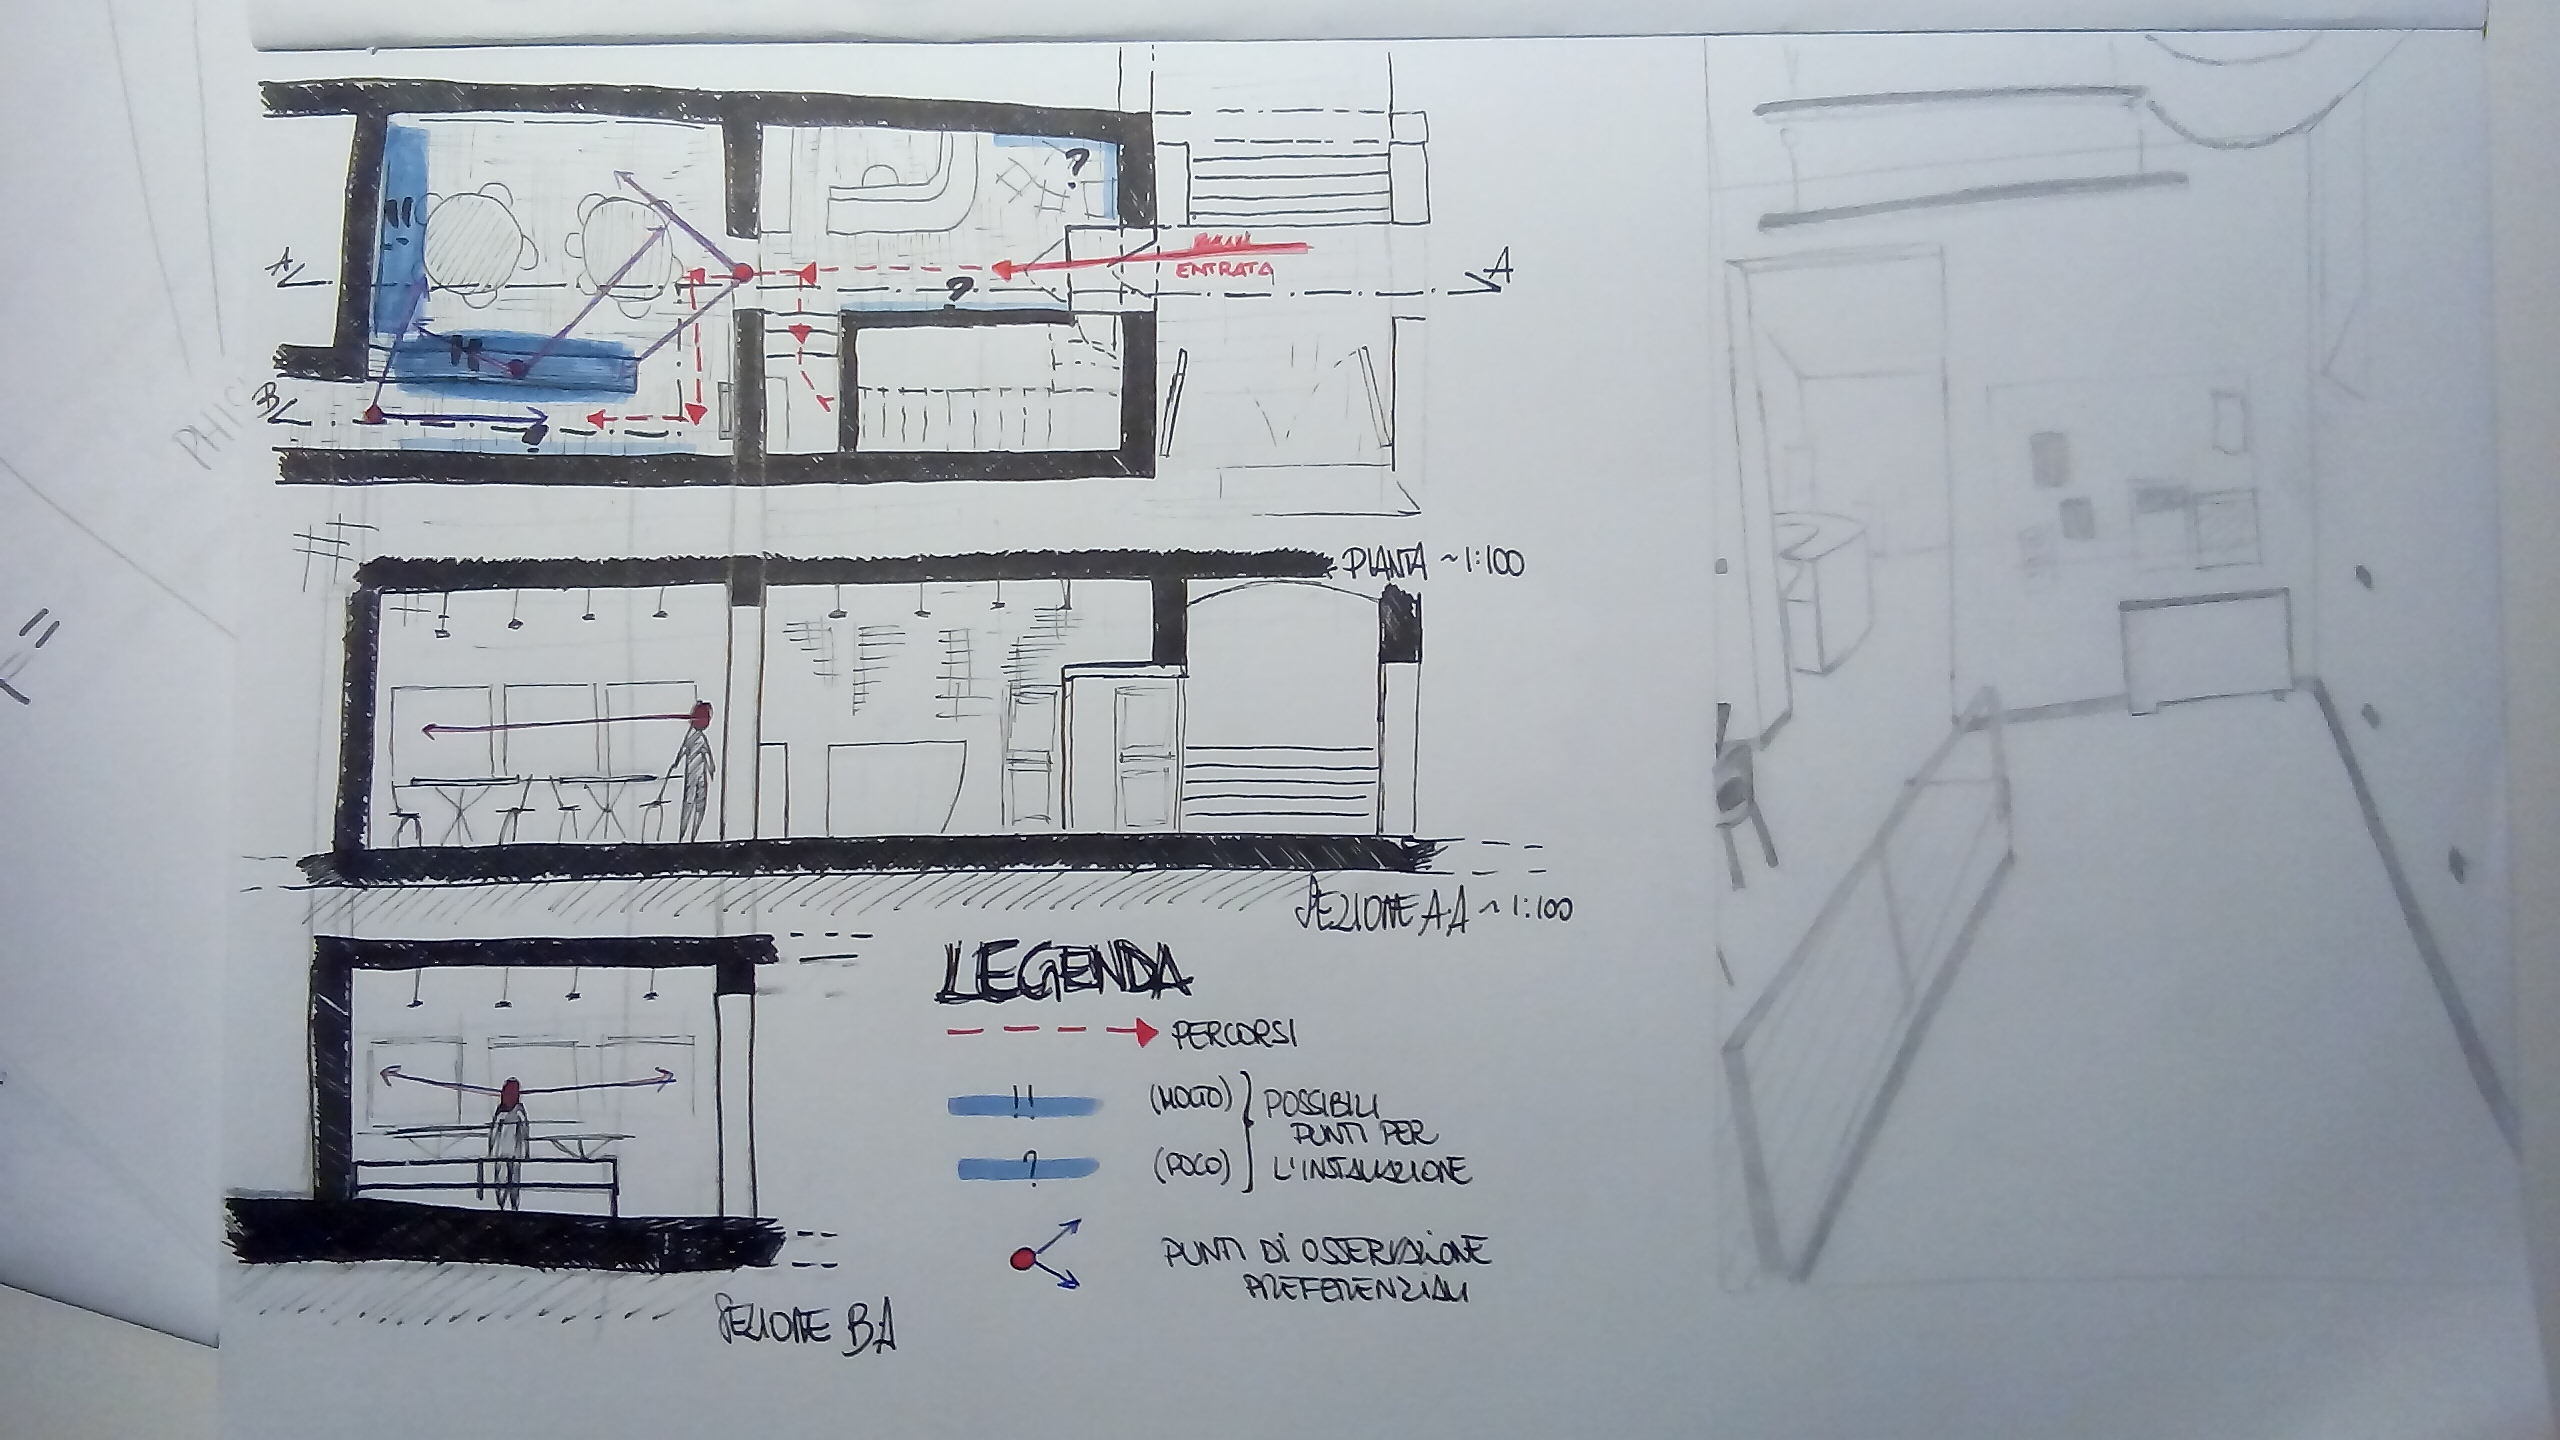 !!
?
A
ENTRATA
?
A
!!
B
?
PIANTA ~1:100
SEZIONE A-A ~ 1:100
LEGENDA
PERCORSI
!! (MOLTO)
? (POCO)
POSSIBILI
PUNTI PER
L'INSTALLAZIONE
PUNTI DI OSSERVAZIONE
PREFERENZIALI
SEZIONE BA